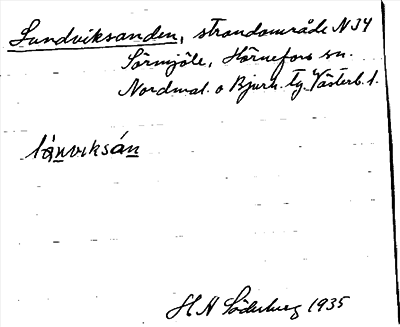 Sundviksanden, strandområde N 34
Sörmjöle, Hörnefors sn.
Nordmal. o Bjurh. tg. Västerb. l.
H A Söderberg 1935